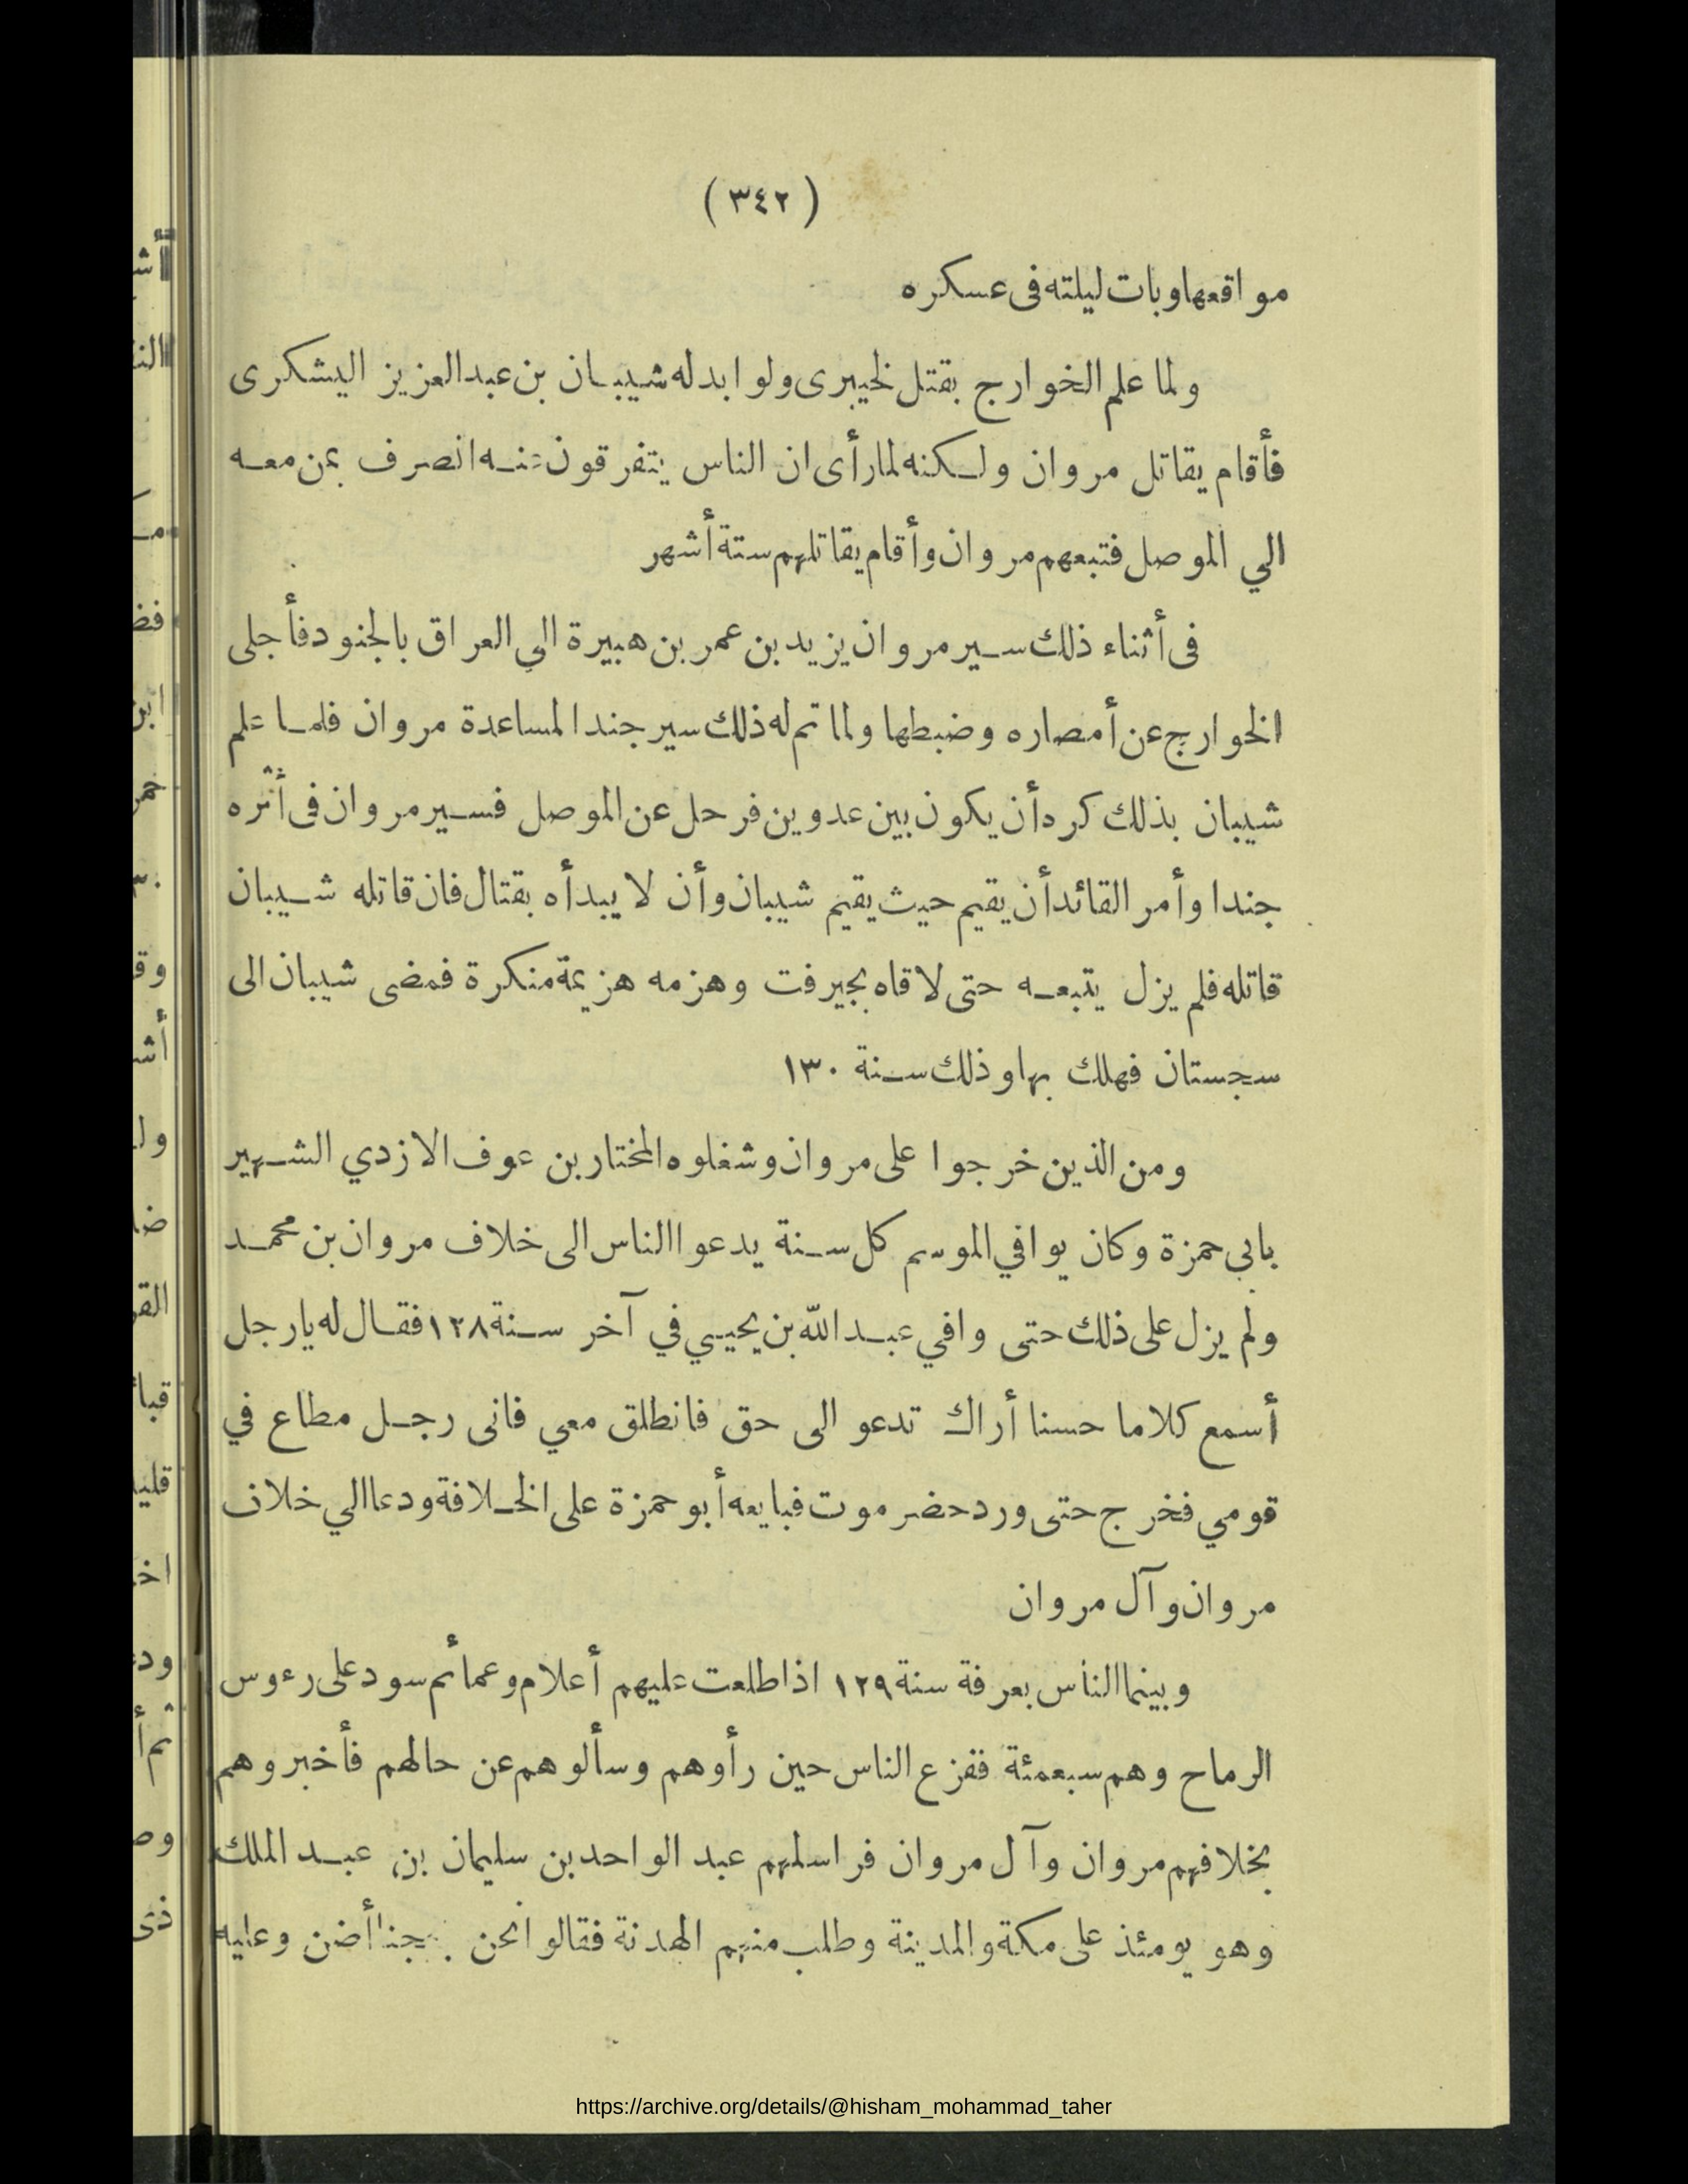 (٣٤٢)
مواقعها وبات ليلته فى عسكره
ولما علم الخوارج بقتل لخيبرى ولوا بدله شيبان بن عبد العزيز اليشكرى
فأقام يقاتل مروان ولكنه لما رأى ان الناس يتفرقون عنه انصرف بمن معه
الي الموصل فتبعهم مروان وأقام يقاتلهم ستة أشهر
فى أثناء ذلك سير مروان يزيد بن عمر بن هبيرة الي العراق بالجنود فأجلى
الخوارج عن أمصاره وضبطها ولما تم له ذلك سير جندا لمساعدة مروان فلما علم
شيبان بذلك كره أن يكون بين عدوين فرحل عن الموصل فسير مروان فى أثره
جندا وأمر القائد أن يقيم حيث يقيم شيبان وأن لا يبدأه بقتال فان قاتله شيبان
قاتله فلم يزل يتبعه حتى لاقاه بجيرفت وهزمه هزيمة منكرة فمضى شيبان الى
سجستان فهلك بها وذلك سنة ١٣٠
ومن الذين خرجوا على مروان وشغلوه المختار بن عوف الازدي الشهير
بابى حمزة وكان يوافي الموسم كل سنة يدعوا الناس الى خلاف مروان بن محمد
ولم يزل على ذلك حتى وافي عبد الله بن يحيي في آخر سنة ١٢٨ فقال له يا رجل
أسمع كلاما حسنا أراك تدعو الى حق فانطلق معي فانى رجل مطاع في
قومي فخرج حتى ورد حضرموت فبايعه أبو حمزة على الخلافة ودعا الي خلاف
مروان وآل مروان
وبينما الناس بعرفة سنة ١٢٩ اذا طلعت عليهم أعلام وعمائم سود على رءوس
الرماح وهم سبعمئة ففزع الناس حين رأوهم وسألوهم عن حالهم فأخبروهم
بخلافهم مروان وآل مروان فراسلهم عبد الواحد بن سليمان بن عبد الملك
وهو يومئذ على مكة والمدينة وطلب منهم الهدنة فقالوا نحن بحجنا أضن وعليه
https://archive.org/details/@hisham_mohammad_taher